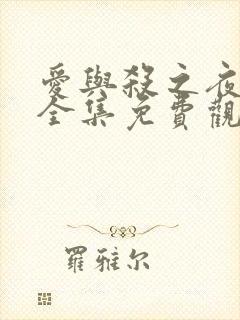 愛與殺之夜
全集免費觀
羅雅尔